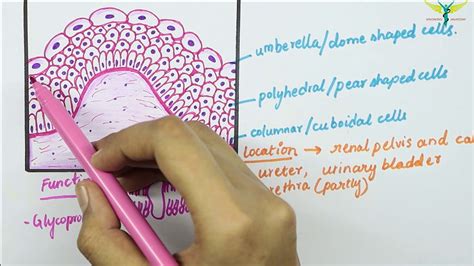 umbrella/dome shaped cells.
polyhedral/pear shaped cells
columnar/cuboidal cells
Location → renal pelvis and ca
ureter, urinary bladder
rethra (partly)
Functi
- Glycopro